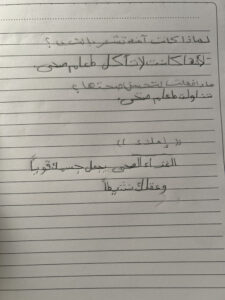 لماذا كانت آمنة تشعر بالتعب؟
لأنها كانت لا تأكل طعام صحي.
ماذا فعلت لتتحسن صحتها؟
تناولت طعام صحي.
(( إعلان ))
الغذاء الصحي يجعل جسمك قوياً
وعقلك نشيطاً